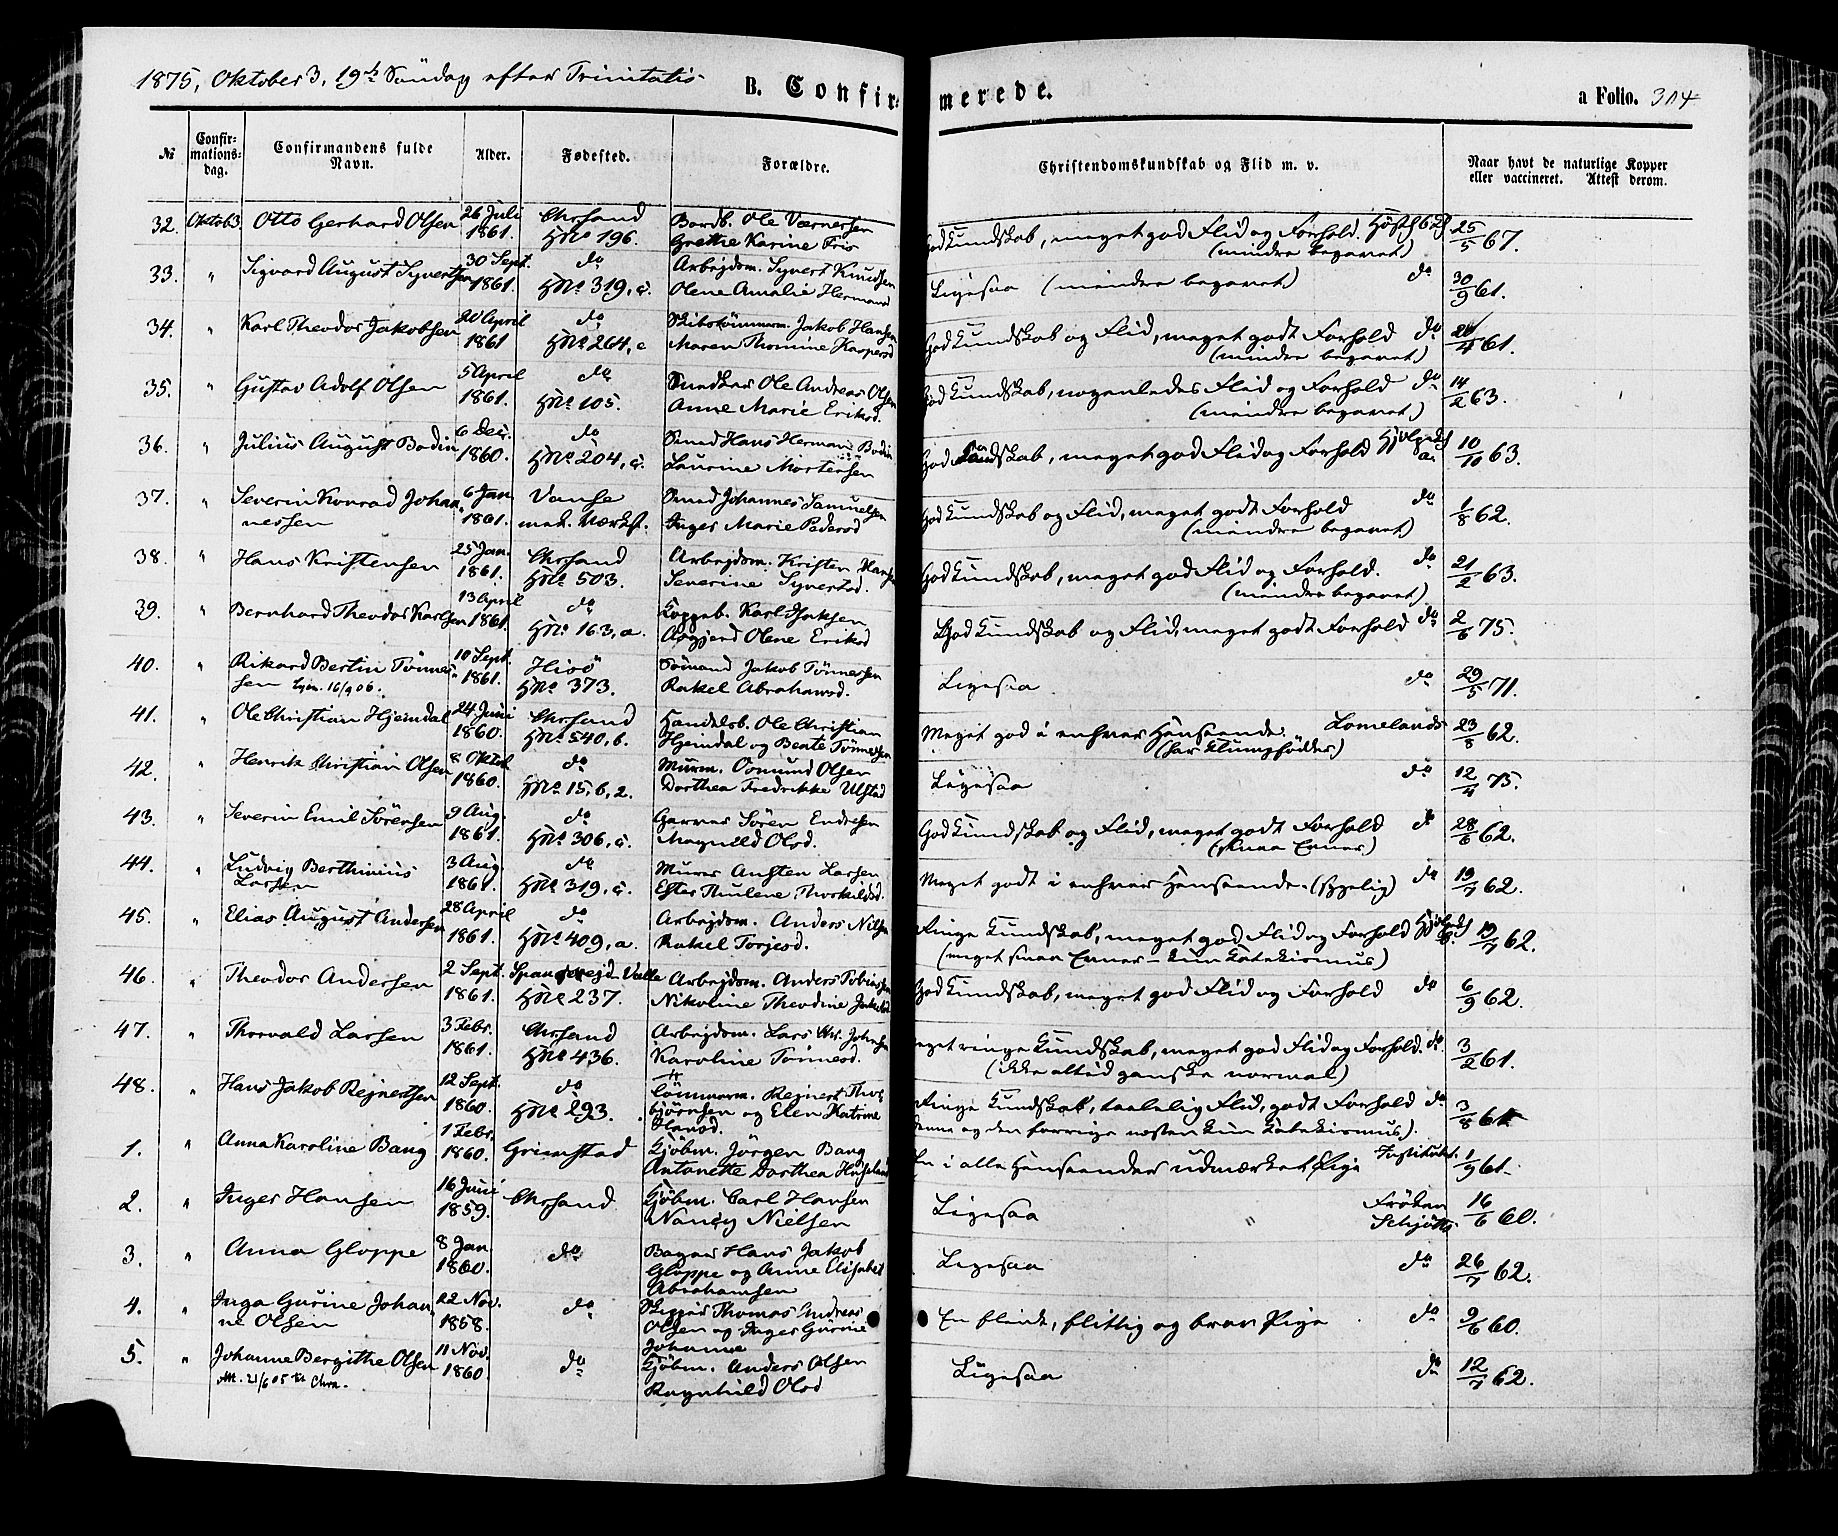 1875, Oktober 3, 19de Søndag efter Trinitatis
B. Confirmerede.
a Folio. 304
№
Confirmations-dag.
Confirmandens fulde Navn.
Alder.
Fødested.
Forældre.
Christendomskundskab og Flid m. v.
Naar havt de naturlige Kopper eller vaccineret. Attest derom.
32. Oktob 3. Otto Gerhard Olsen 26 Juli 1861. Chrsand H№ 196. Bordb. Ole Værnersen Grethe Karine Friis God Kundskab, meget god Flid og Forhold. (mindre begavet) 25/5 67.
33. " Sigvard August Syvertsen 30 Sept. 1861. do H№ 319, c. Arbejdsm. Syvert Knudsen Olene Amalie Hermansd Ligesaa (mindre begavet) do 30/9 61.
34. " Karl Theodor Jakobsen 20 April 1861 do H№ 264, c Skibstømmerm. Jakob Hansen Maren Thomine Kaspersd God Kundskab og Flid, meget godt Forhold (mindre begavet) do 24/4 61.
35. " Gustav Adolf Olsen 5 April 1861. do H№ 105. Ole Andreas Olsen Anne Marie Eriksd. God Kundskab, nogenledes Flid og Forhold (mindre begavet) do 14/2 63.
36. " Julius August Bodin 6 Dec. 1860. do H№ 204, c. Smed Hans Herman Bodin Laurine Mortensen God Kundskab, meget god Flid og Forhold 10/10 63.
37. " Severin Konrad Johannessen 6 Jan. 1861. Vanse mek. Værkst. Smed Johannes Samuelsen Inger Marie Pedersd God Kundskab og Flid, meget godt Forhold (mindre begavet) do 1/8 62.
38. " Hans Kristensen 25 Jan. 1861. Chrsand H№ 503. Arbejdsm. Kristen Hansen Severine Syvertsd. God Kundskab, meget god Flid og Forhold. (mindre begavet) do 21/2 63.
39. " Bernhard Theodor Karlsen 13 April 1861. do H№ 163, a. Karl Isaksen Aasgjerd Olene Eriksd God Kundskab og Flid, meget godt Forhold do 2/6 75.
40. " Rikard Bertin Tønnessen 16/9 06. 10 Sept. 1861. Hisö H№ 373. Sømand Jakob Tønnessen Rakel Abrahamsd. Ligesaa do 29/5 71.
41. " Ole Christian Hjemdal 24 Juni 1860. Chrsand H№ 540, b. Handelsb. Ole Christian Hjemdal og Bente Tønnesen Meget god i enhver Henseende. (har Klumpfødder) Lomelands 23/8 62.
42. " Henrik Christian Olsen 8 Oktob. 1860. do H№ 15, b, 2. Murm. Osmund Olsen Dorthea Fredrikke Ulstad Ligesaa do 12/4 75.
43. " Severin Emil Sørensen 9 Aug. 1861. do H№ 306, c. Garver Søren Endresen Magnild Olsd. God Kundskab og Flid, meget godt Forhold (smaa Evner) do 28/6 62.
44. " Ludvig Berthinius Larsen 3 Aug. 1861. do H№ 319, c. Murer Austen Larsen Ester Thuline Thorkildsd. Meget godt i enhver Henseende. (sygelig) do 19/7 62.
45. " Elias August Andersen 28 April 1861. do H№ 409, a. Arbejdsm. Anders Nilsen Rakel Torjesd. Ringe Kundskab, meget god Flid og Forhold (meget smaa Evner – kun Katekismus) 19/7 62.
46. " Theodor Andersen 2 Sept. 1861. Spangereid Valle H№ 237. Arbejdsm. Anders Tobiassen Nikoline Theodine God Kundskab, meget god Flid og Forhold do 6/9 62.
47. " Thorvald Larsen 3 Febr. 1861. Chrsand H№ 436. Arbejdsm. Lars Chr. Johnsen Karoline Tønnesd. Meget ringe Kundskab, meget god Flid og Forhold. (ikke altid ganske normal) do 3/2 61.
48. " Hans Jakob Rejnertsen 12 Sept. 1860. do H№ 293. Tømmerm. Rejnert Thorbjørnsen og Elen Katrine Hansd. Ringe Kundskab, taalelig Flid, godt Forhold (denne og den forrige næsten kun Katekismus). do 3/8 61.
1. " Anna Karoline Bang 1 Febr. 1860. Grimstad Kjøbm. Jörgen Bang Antonette Dorthea En i alle Henseender udmærket Pige Institutet. 1/9 61.
2. " Inger Hansen 16 Juni 1859. Chrsand. Kjøbm. Carl Hansen Nancy Nielsen Ligesaa Frøken Schjøtts 16/6 60.
3. " Anna Gloppe 8 Jan. 1860. do Bager Hans Jakob Gloppe og Anne Elisabet Abrahamsen Ligesaa do 26/7 62.
4. " Inga Gurine Johanne Olsen 22 Nov. 1858. do Skipper Thomas Andreas Olsen og Inger Gurine Johanne En flink, flittig og brav Pige do 9/6 60.
5. " Johanne Bergithe Olsen Att. 21/6 05 til Chra. 11 Nov. 1860 do Kjøbm. Anders Olsen Ragnhild Olsd Ligesaa do 12/7 62.